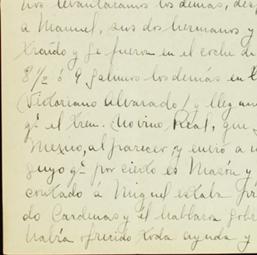 nos levantáramos los demás, des
a Manuel, sus dos hermanos y
y se fueron en el coche de
8 1/2 ó 9 salimos los demás en
Victoriano Alvarado) y llegamos
el tren. No vino Real, que
Mexico, al parecer, y envió a u
suyo qe por cierto es Masón y
contado á Miguel estaba
do Cardenas y él hablara sobre
habia ofrecido toda ayuda y